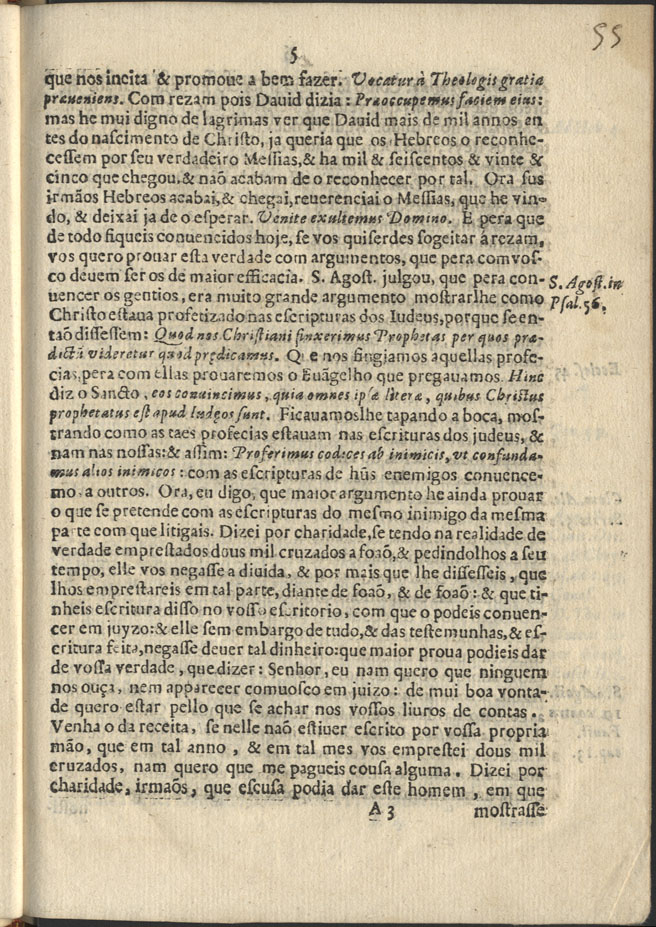 55
5
que nos incita & promoue a bem fazer. Vocatur à Theologis gratia
præueniens. Com rezam pois Dauid dizia: Præoccupemus faciem eius:
mas he mui digno de lagrimas ver que Dauid mais de mil annos en
tes do nascimento de Christo, ja queria que os Hebreos o reconhe-
cessem por seu verdadeiro Messias, & ha mil & seiscentos & vinte &
cinco que chegou, & não acabam de o reconhecer por tal. Ora sus
irmãos Hebreos acabai, & chegai, reuerenciai o Messias, que he vin-
do, & deixai ja de o esperar. Venite exultemus Domino. E pera que
de todo fiqueis conuencidos hoje, se vos quiserdes sogeitar á rezam,
vos quero prouar esta verdade com argumentos, que pera com vos-
co deuem ser os de maior efficacia. S. Agost. julgou, que pera con-
uencer os gentios, era muito grande argumento mostrarlhe como
Christo estaua profetizado nas escripturas dos Iudeus, porque se en-
taõ dissessem: Quod nos Christiani finxerimus Prophetas per quos præ-
dictũ videretur quod prędicamus. Que nos fingiamos aquellas profe-
cias, pera com ellas prouaremos o Euãgelho que pregauamos. Hinc
diz o Sancto, eos conuincimus, quia omnes ipsæ literæ, quibus Christus
prophetatus est apud Iudęos sunt. Ficauamoslhe tapando a boca, mos-
trando como as taes profecias estauam nas escrituras dos judeus, &
nam nas nossas: & assim: Proferimus codices ab inimicis, vt confunda-
mus alios inimicos: com as escripturas de hũs enemigos conuence-
mo a outros. Ora, eu digo, que maior argumento he ainda prouar
o que se pretende com as escripturas do mesmo inimigo da mesma
parte com que litigais. Dizei por charidade, se tendo na realidade de
verdade emprestados dous mil cruzados a foaõ, & pedindolhos a seu
tempo, elle vos negasse a diuida, & por mais que lhe dissesseis, que
lhos emprestareis em tal parte, diante de foaõ, & de foaõ: & que ti-
nheis escritura disso no vosso escritorio, com que o podeis conuen-
cer em juyzo: & elle sem embargo de tudo, & das testemunhas, & es-
critura feita, negasse deuer tal dinheiro: que maior proua podieis dar
de vossa verdade, que dizer: Senhor, eu nam quero que ninguem
nos ouça, nem apparecer comuosco em juizo: de mui boa vonta-
de quero estar pello que se achar nos vossos liuros de contas.
Venha o da receita, se nelle naõ estiuer escrito por vossa propria
mão, que em tal anno, & em tal mes vos emprestei dous mil
cruzados, nam quero que me pagueis cousa alguma. Dizei por
charidade, irmaõs, que escusa podia dar este homem, em que
A 3 mostrasse
S. Agost. in
Psal. 56.